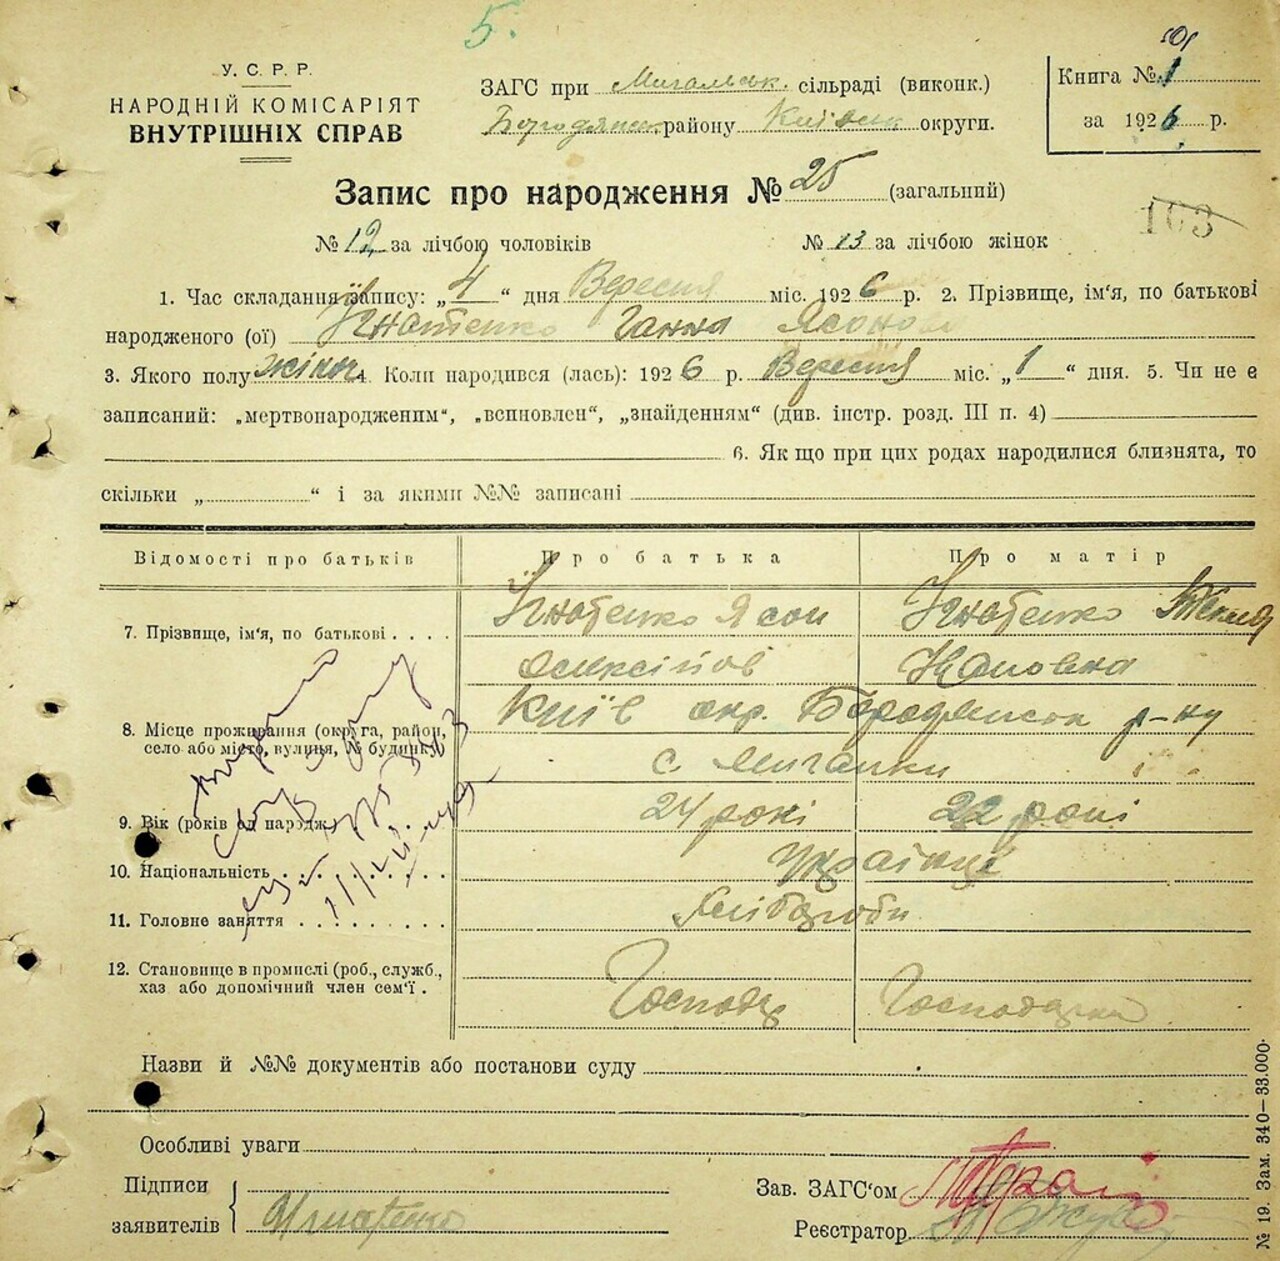 5.
У. С. Р. Р.
НАРОДНІЙ КОМІСАРІЯТ
ВНУТРІШНІХ СПРАВ
ЗАГС при Мигальськ. сільраді (виконк.)
Бородянськ. району Київськ. округи.
Книга № 1
за 1926 р.
Запис про народження № 25 (загальний)
103
№ 12 за лічбою чоловіків № 13 за лічбою жінок
1. Час складання запису: „4“ дня Вересня міс. 1926 р. 2. Прізвище, ім'я, по батькові
народженого (ої) Ігнатенко Ганна Ясонов
3. Якого полу жіноч. 4. Коли народився (лась): 1926 р. Вересня міс. „1“ дня. 5. Чи не є
записаний: „мертвонародженим“, „всиновлен“, „знайденням“ (див. інстр. розд. III п. 4)
6. Як що при цих родах народилися близнята, то
скільки „ “ і за якими №№ записані
Відомості про батьків Про батька Про матір
7. Прізвище, ім'я, по батькові . . . . Ігнатенко Ясон Ігнатенко
8. Місце проживання (округа, район,
село або місто, вулиця, № будинку)
Київ окр. Бородянськ р-ну
с. Мигалки
9. Вік (років од народж. 24 рокі 22 рокі
10. Національність . . . . . . . Українці
11. Головне заняття . . . . . . . Хлібороби
12. Становище в промислі (роб., служб.,
хаз або допомічний член сем'ї .
Господар Господарка
Назви й №№ документів або постанови суду
Особливі уваги
Підписи
заявителів Ігнатенко
Зав. ЗАГС'ом
Реєстратор
№ 19. Зам. 340—33.000.